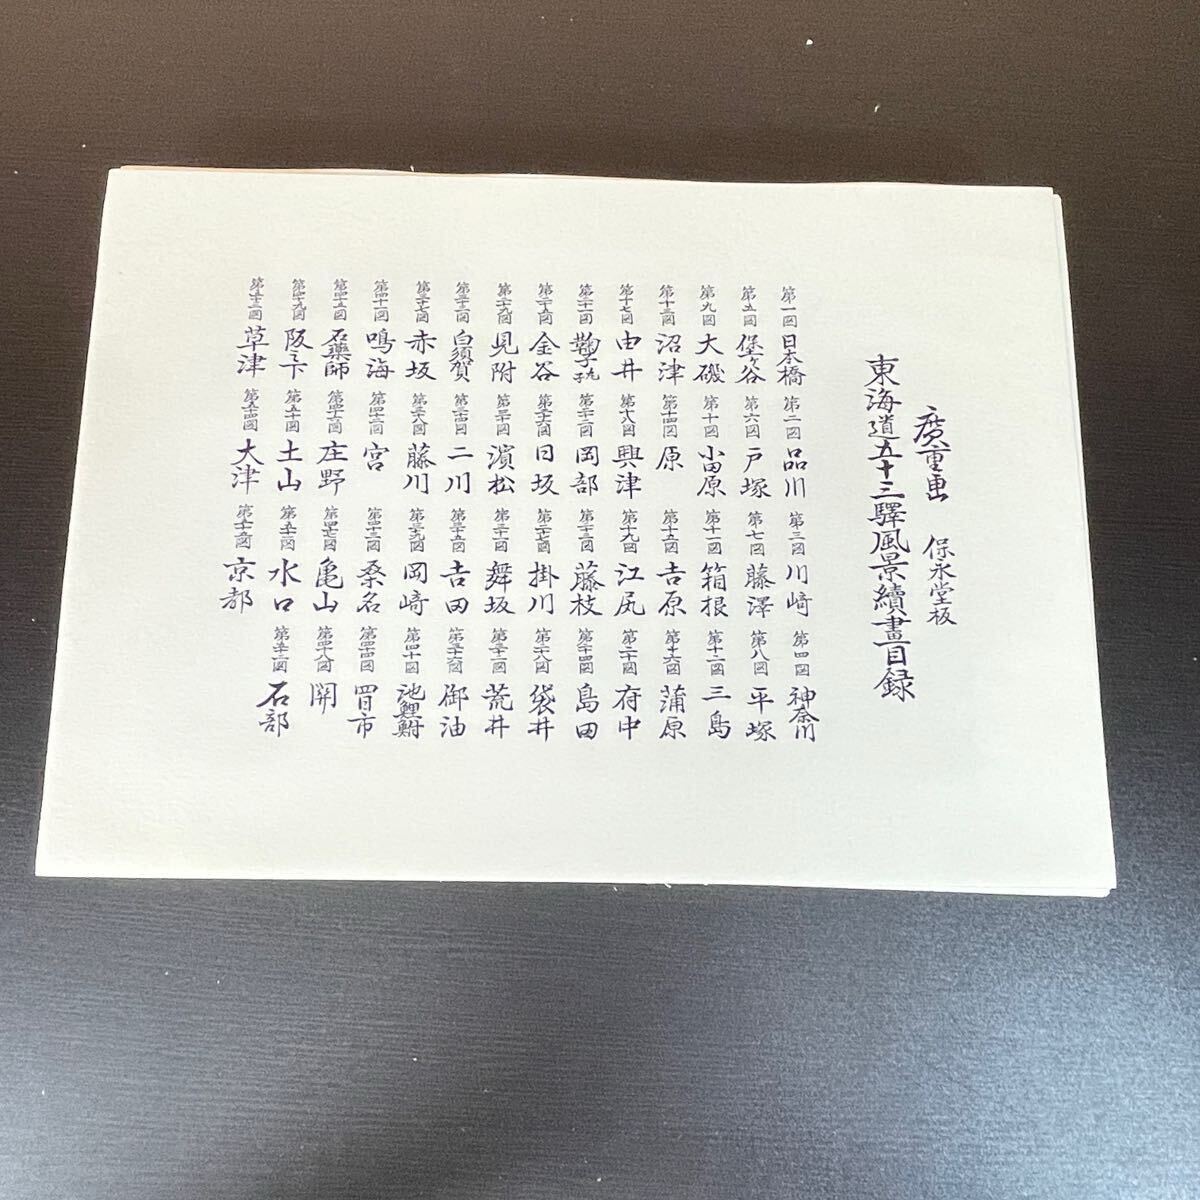 廣重画 保永堂板
東海道五十三驛風景續畫目録
第一図 日本橋 第二図 品川 第三図 川崎 第四図 神奈川
第五図 堡ヶ谷 第六図 戸塚 第七図 藤澤 第八図 平塚
第九図 大磯 第十図 小田原 第十一図 箱根 第十二図 三島
第十三図 沼津 第十四図 原 第十五図 吉原 第十六図 蒲原
第十七図 由井 第十八図 興津 第十九図 江尻 第二十図 府中
第二十一図 鞠子 丸子 第二十二図 岡部 第二十三図 藤枝 第二十四図 島田
第二十五図 金谷 第二十六図 日坂 第二十七図 掛川 第二十八図 袋井
第二十九図 見附 第三十図 濱松 第三十一図 舞坂 第三十二図 荒井
第三十三図 白須賀 第三十四図 二川 第三十五図 吉田 第三十六図 御油
第三十七図 赤坂 第三十八図 藤川 第三十九図 岡崎 第四十図 池鯉鮒
第四十一図 鳴海 第四十二図 宮 第四十三図 桑名 第四十四図 四日市
第四十五図 石藥師 第四十六図 庄野 第四十七図 亀山 第四十八図 関
第四十九図 阪之下 第五十図 土山 第五十一図 水口 第五十二図 石部
第五十三図 草津 第五十四図 大津 第五十五図 京都